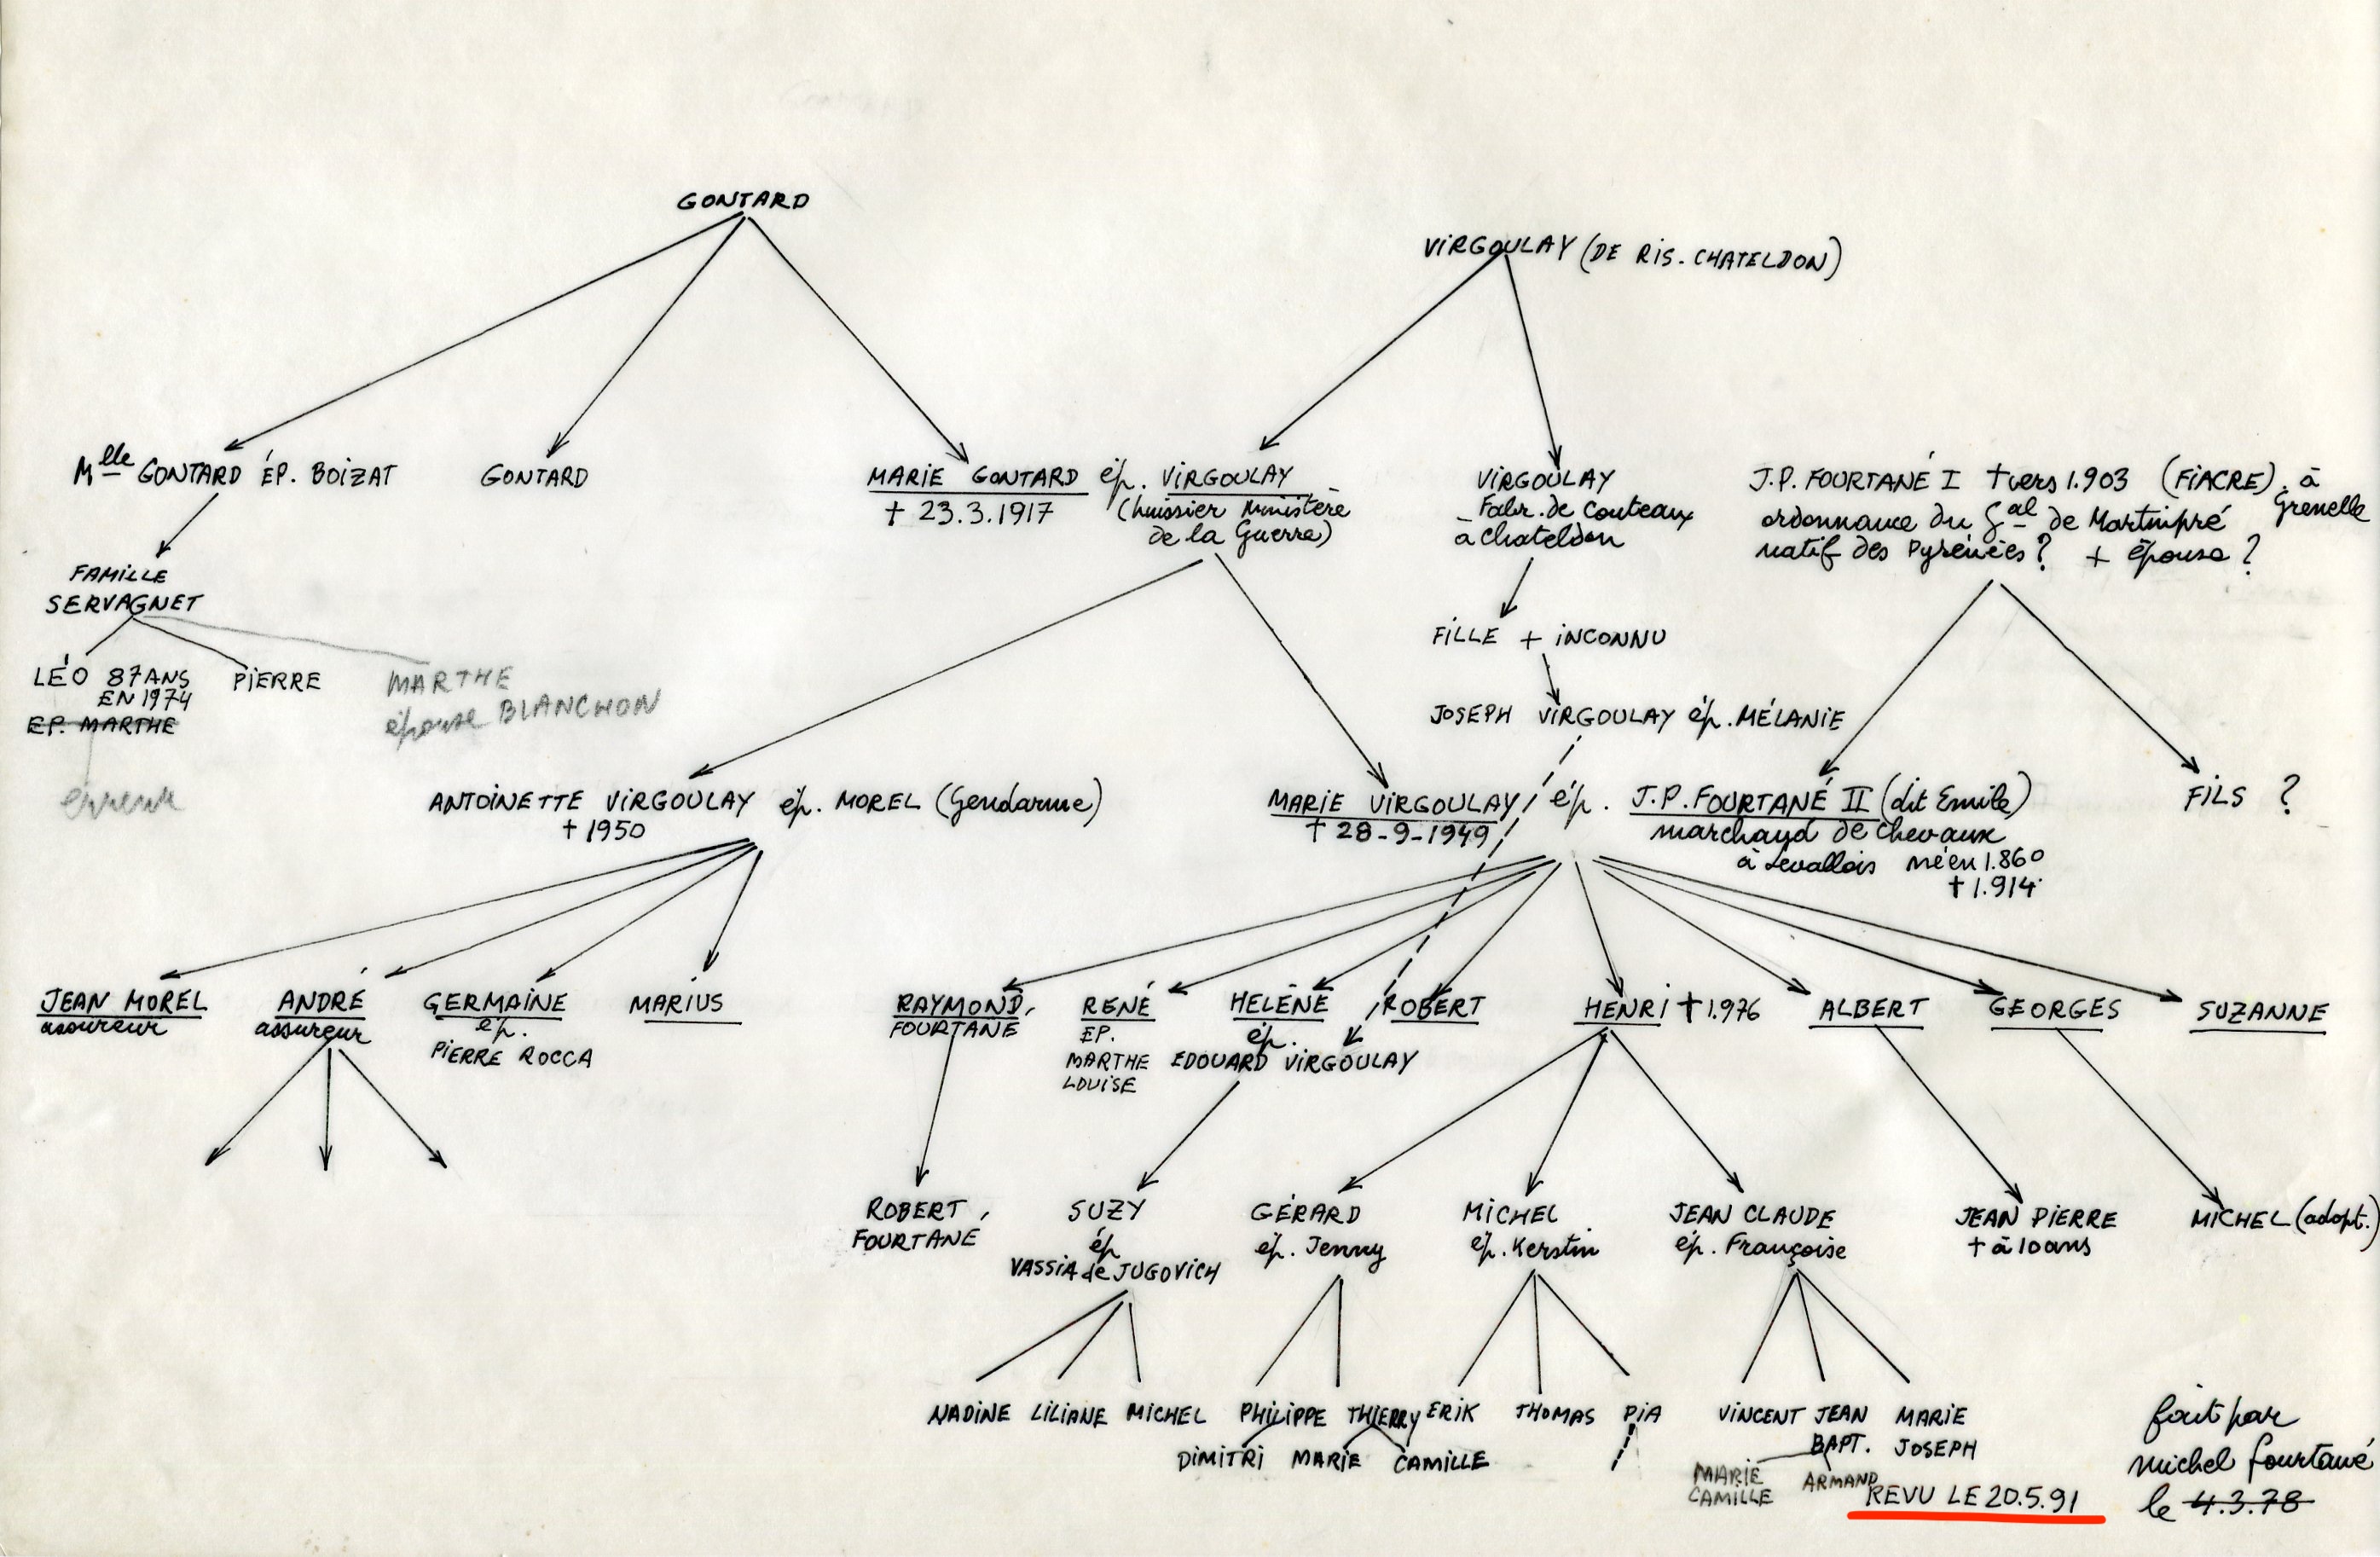 GONTARD
VIRGOULAY (DE RIS. CHATELDON)
Mlle GONTARD ÉP. BOIZAT
GONTARD
MARIE GONTARD ép. VIRGOULAY
† 23.3.1917
(huissier Ministère
de la Guerre)
VIRGOULAY
Fabr. de Couteaux
à Chateldon
J.P. FOURTANÉ I † vers 1.903 (FIACRE). à
Grenelle
ordonnance du Gal de Martinpré
natif des Pyrénées? + épouse?
FAMILLE
SERVAGNET
FILLE + INCONNU
LÉO 87 ANS
EN 1974
EP. MARTHE
PIERRE
MARTHE
épouse BLANCHON
JOSEPH VIRGOULAY ép. MÉLANIE
ANTOINETTE VIRGOULAY ép. MOREL (Gendarme)
† 1950
MARIE VIRGOULAY ép. J.P. FOURTANÉ II (dit Emile)
† 28-9-1949
marchand de Chevaux
à Levallois né en 1.860
† 1.914
FILS ?
JEAN MOREL
assureur
ANDRÉ
assureur
GERMAINE
ép.
PIERRE ROCCA
MARIUS
RAYMOND
FOURTANÉ
RENÉ
EP.
MARTHE
LOUISE
HELÈNE
ép.
EDOUARD VIRGOULAY
ROBERT
HENRI † 1.976
ALBERT
GEORGES
SUZANNE
ROBERT
FOURTANÉ
SUZY
ép
VASSIA de JUGOVICH
GÉRARD
ép. Jenny
MICHEL
ép. Kerstin
JEAN CLAUDE
ép. Françoise
JEAN PIERRE
† à 10 ans
MICHEL (adopt.)
NADINE LILIANE MICHEL
PHILIPPE THIERRY
ERIK THOMAS PIA
VINCENT JEAN MARIE
BAPT. JOSEPH
DIMITRI MARIE CAMILLE
MARIE
CAMILLE
ARMAND
REVU LE 20.5.91
fait par
michel fourtané
le 4.3.78